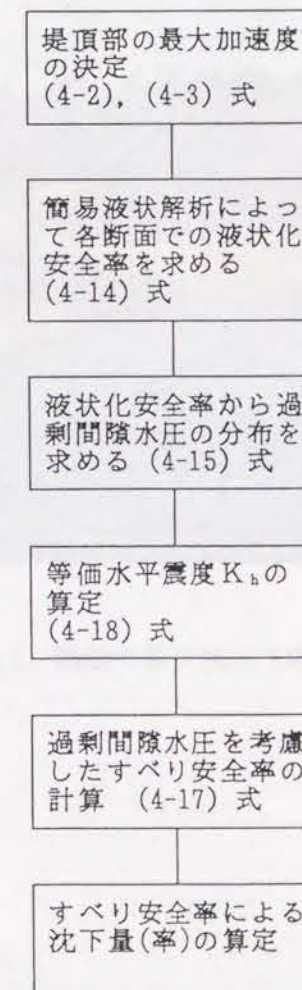 堤頂部の最大加速度
の決定
(4-2), (4-3) 式
簡易液状解析によっ
て各断面での液状化
安全率を求める
(4-14) 式
液状化安全率から過
剰間隙水圧の分布を
求める (4-15) 式
等価水平震度Khの
算定
(4-18) 式
過剰間隙水圧を考慮
したすべり安全率の
計算 (4-17) 式
すべり安全率による
沈下量(率)の算定